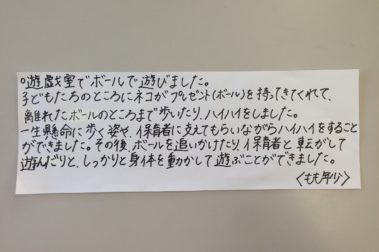 ○遊戯室でボールで遊びました。
子どもたちのところにネコがプレゼント(ボール)を持ってきてくれて、
離れたボールのところまで歩いたり、ハイハイをしました。
一生懸命に歩く姿や、保育者に支えてもらいながらハイハイをすること
ができました。その後、ボールを追いかけたり、保育者と転がして
遊んだりと、しっかりと身体を動かして遊ぶことができました。
〈もも組〉